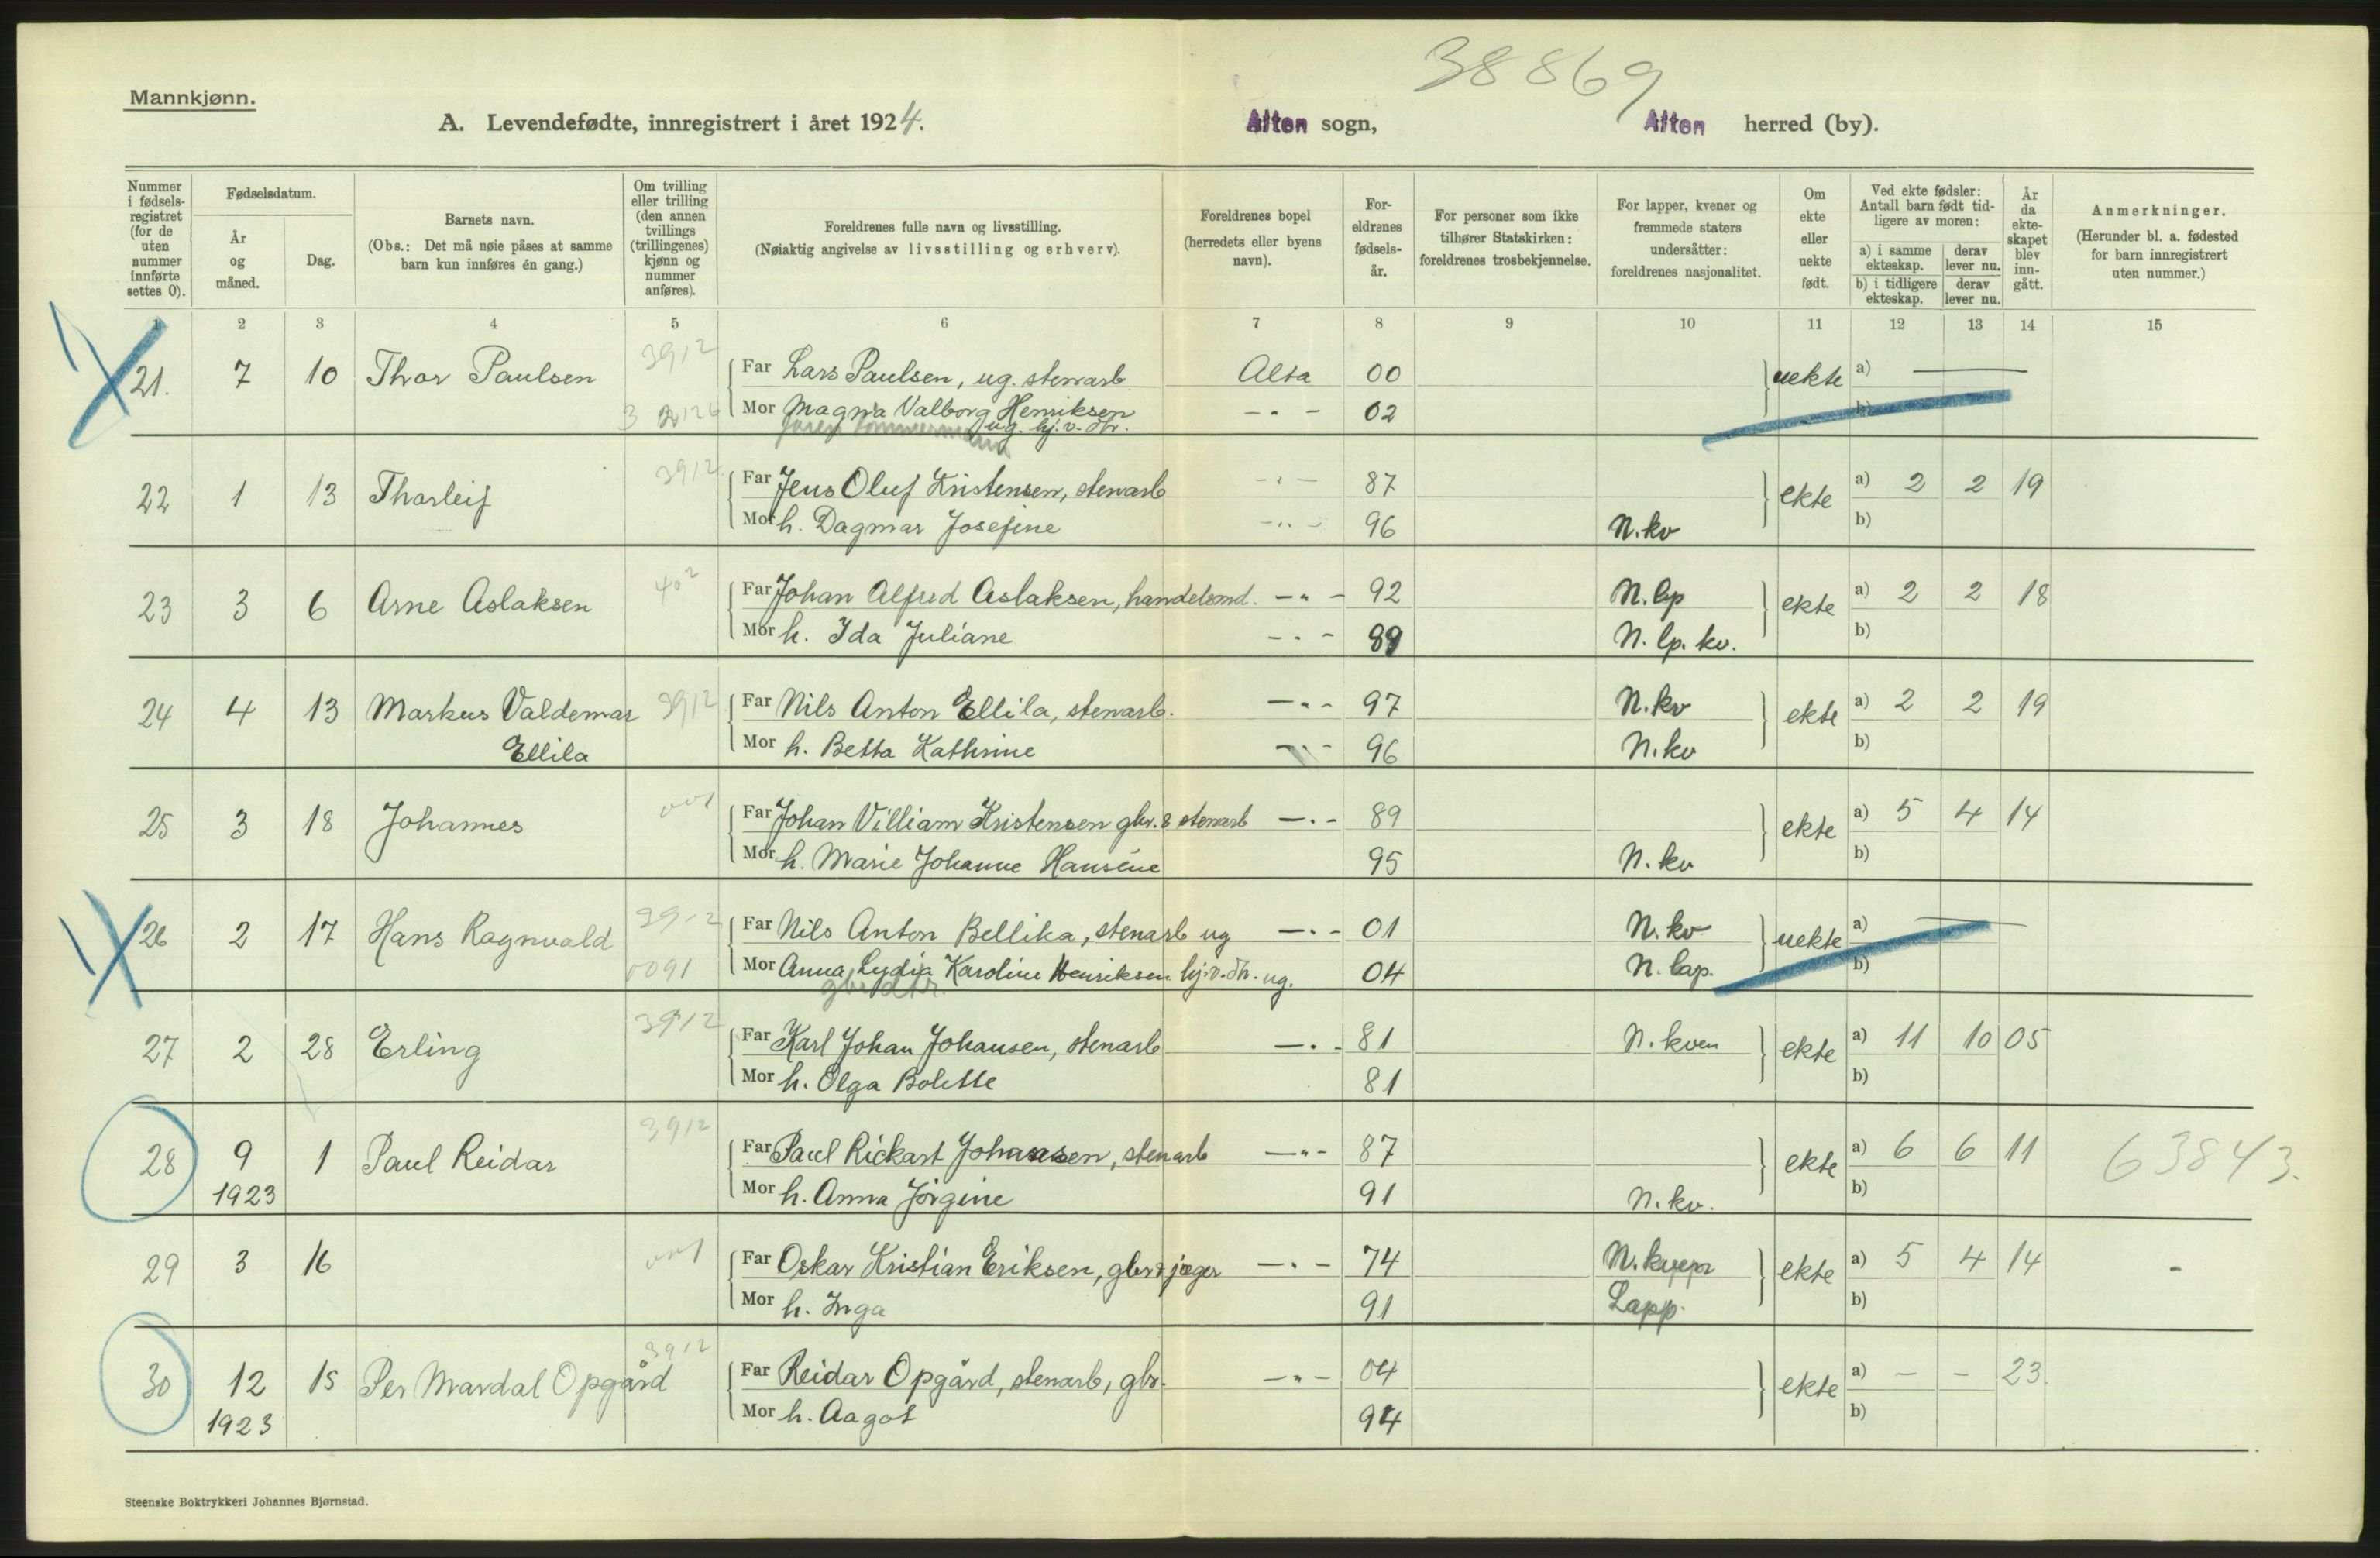 38869
Mannkjønn.
A. Levendefødte, innregistrert i året 1924. Alten sogn, Alten herred (by).
Nummer i fødselsregistret (for de uten nummer innførte settes 0).
Fødselsdatum.
År og måned.
Dag.
Barnets navn.
(Obs.: Det må nøie påses at samme barn kun innføres én gang.)
Om tvilling eller trilling (den annen tvillings (trillingenes) kjønn og nummer anføres).
Foreldrenes fulle navn og livsstilling.
(Nøiaktig angivelse av livsstilling og erhverv).
Foreldrenes bopel (herredets eller byens navn).
Foreldrenes fødselsår.
For personer som ikke tilhører Statskirken: foreldrenes trosbekjennelse.
For lapper, kvener og fremmede staters undersåtter: foreldrenes nasjonalitet.
Om ekte eller uekte født.
Ved ekte fødsler: Antall barn født tidligere av moren:
a) i samme ekteskap. derav lever nu.
b) i tidligere ekteskap. derav lever nu.
År da ekteskapet blev inngått.
Anmerkninger.
(Herunder bl. a. fødested for barn innregistrert uten nummer.)
1 2 3 4 5 6 7 8 9 10 11 12 13 14 15
21. 7 10 Thor Paulsen 3912 Far Lars Paulsen, ug. stenarb. Alta 00 uekte a) —
Mor Magna Valborg Henriksen - " - 02 b)
ug. hj. v. dtr.
22 1 13 Thorleif 3912 Far Jens Oluf Kristensen, stenarb - " - 87 ekte a) 2 2 19
Mor h. Dagmar Josefine - " - 96 N.kv b)
23 3 6 Arne Aslaksen 402 Far Johan Alfred Aslaksen, handelsmd. - " - 92 N.lp ekte a) 2 2 18
Mor h. Ida Juliane - " - 89 N. lp. kv. b)
24 4 13 Markus Valdemar 3912 Far Nils Anton Ellila, stenarb. - " - 97 N.kv ekte a) 2 2 19
Ellila Mor h. Betta Kathrine - " - 96 N.kv b)
25 3 18 Johannes Far Johan Villiam Kristensen gbr. & stenarb - " - 89 ekte a) 5 4 14
Mor h. Marie Johanne Hansine 95 N.kv b)
26 2 17 Hans Ragnvald 3912 Far Nils Anton Bellika, stenarb ug - " - 01 N.kv uekte a) —
0091 Mor Anna Lydia Karoline Henriksen hj.v.dtr. ug. 04 N.lap. b)
gbr dtr.
27 2 28 Erling 3912 Far Karl Johan Johansen, stenarb - " - 81 N.kven ekte a) 11 10 05
Mor h. Olga Bolette 81 b)
28 9 1 Paul Reidar 3912 Far Paul Rickart Johansen, stenarb - " - 87 ekte a) 6 6 11 63843.
1923 Mor h. Anna Jörgine 91 N.kv. b)
29 3 16 Far Oskar Kristian Eriksen, gbr & jæger - " - 74 ekte a) 5 4 14 -
Mor h. Inga 91 Lapp. b)
30 12 15 Per Mardal Opgård 3912 Far Reidar Opgård, stenarb, gbr. - " - 04 ekte a) - - 23.
1923 Mor h. Aagot 94 b)
Steenske Boktrykkeri Johannes Bjørnstad.